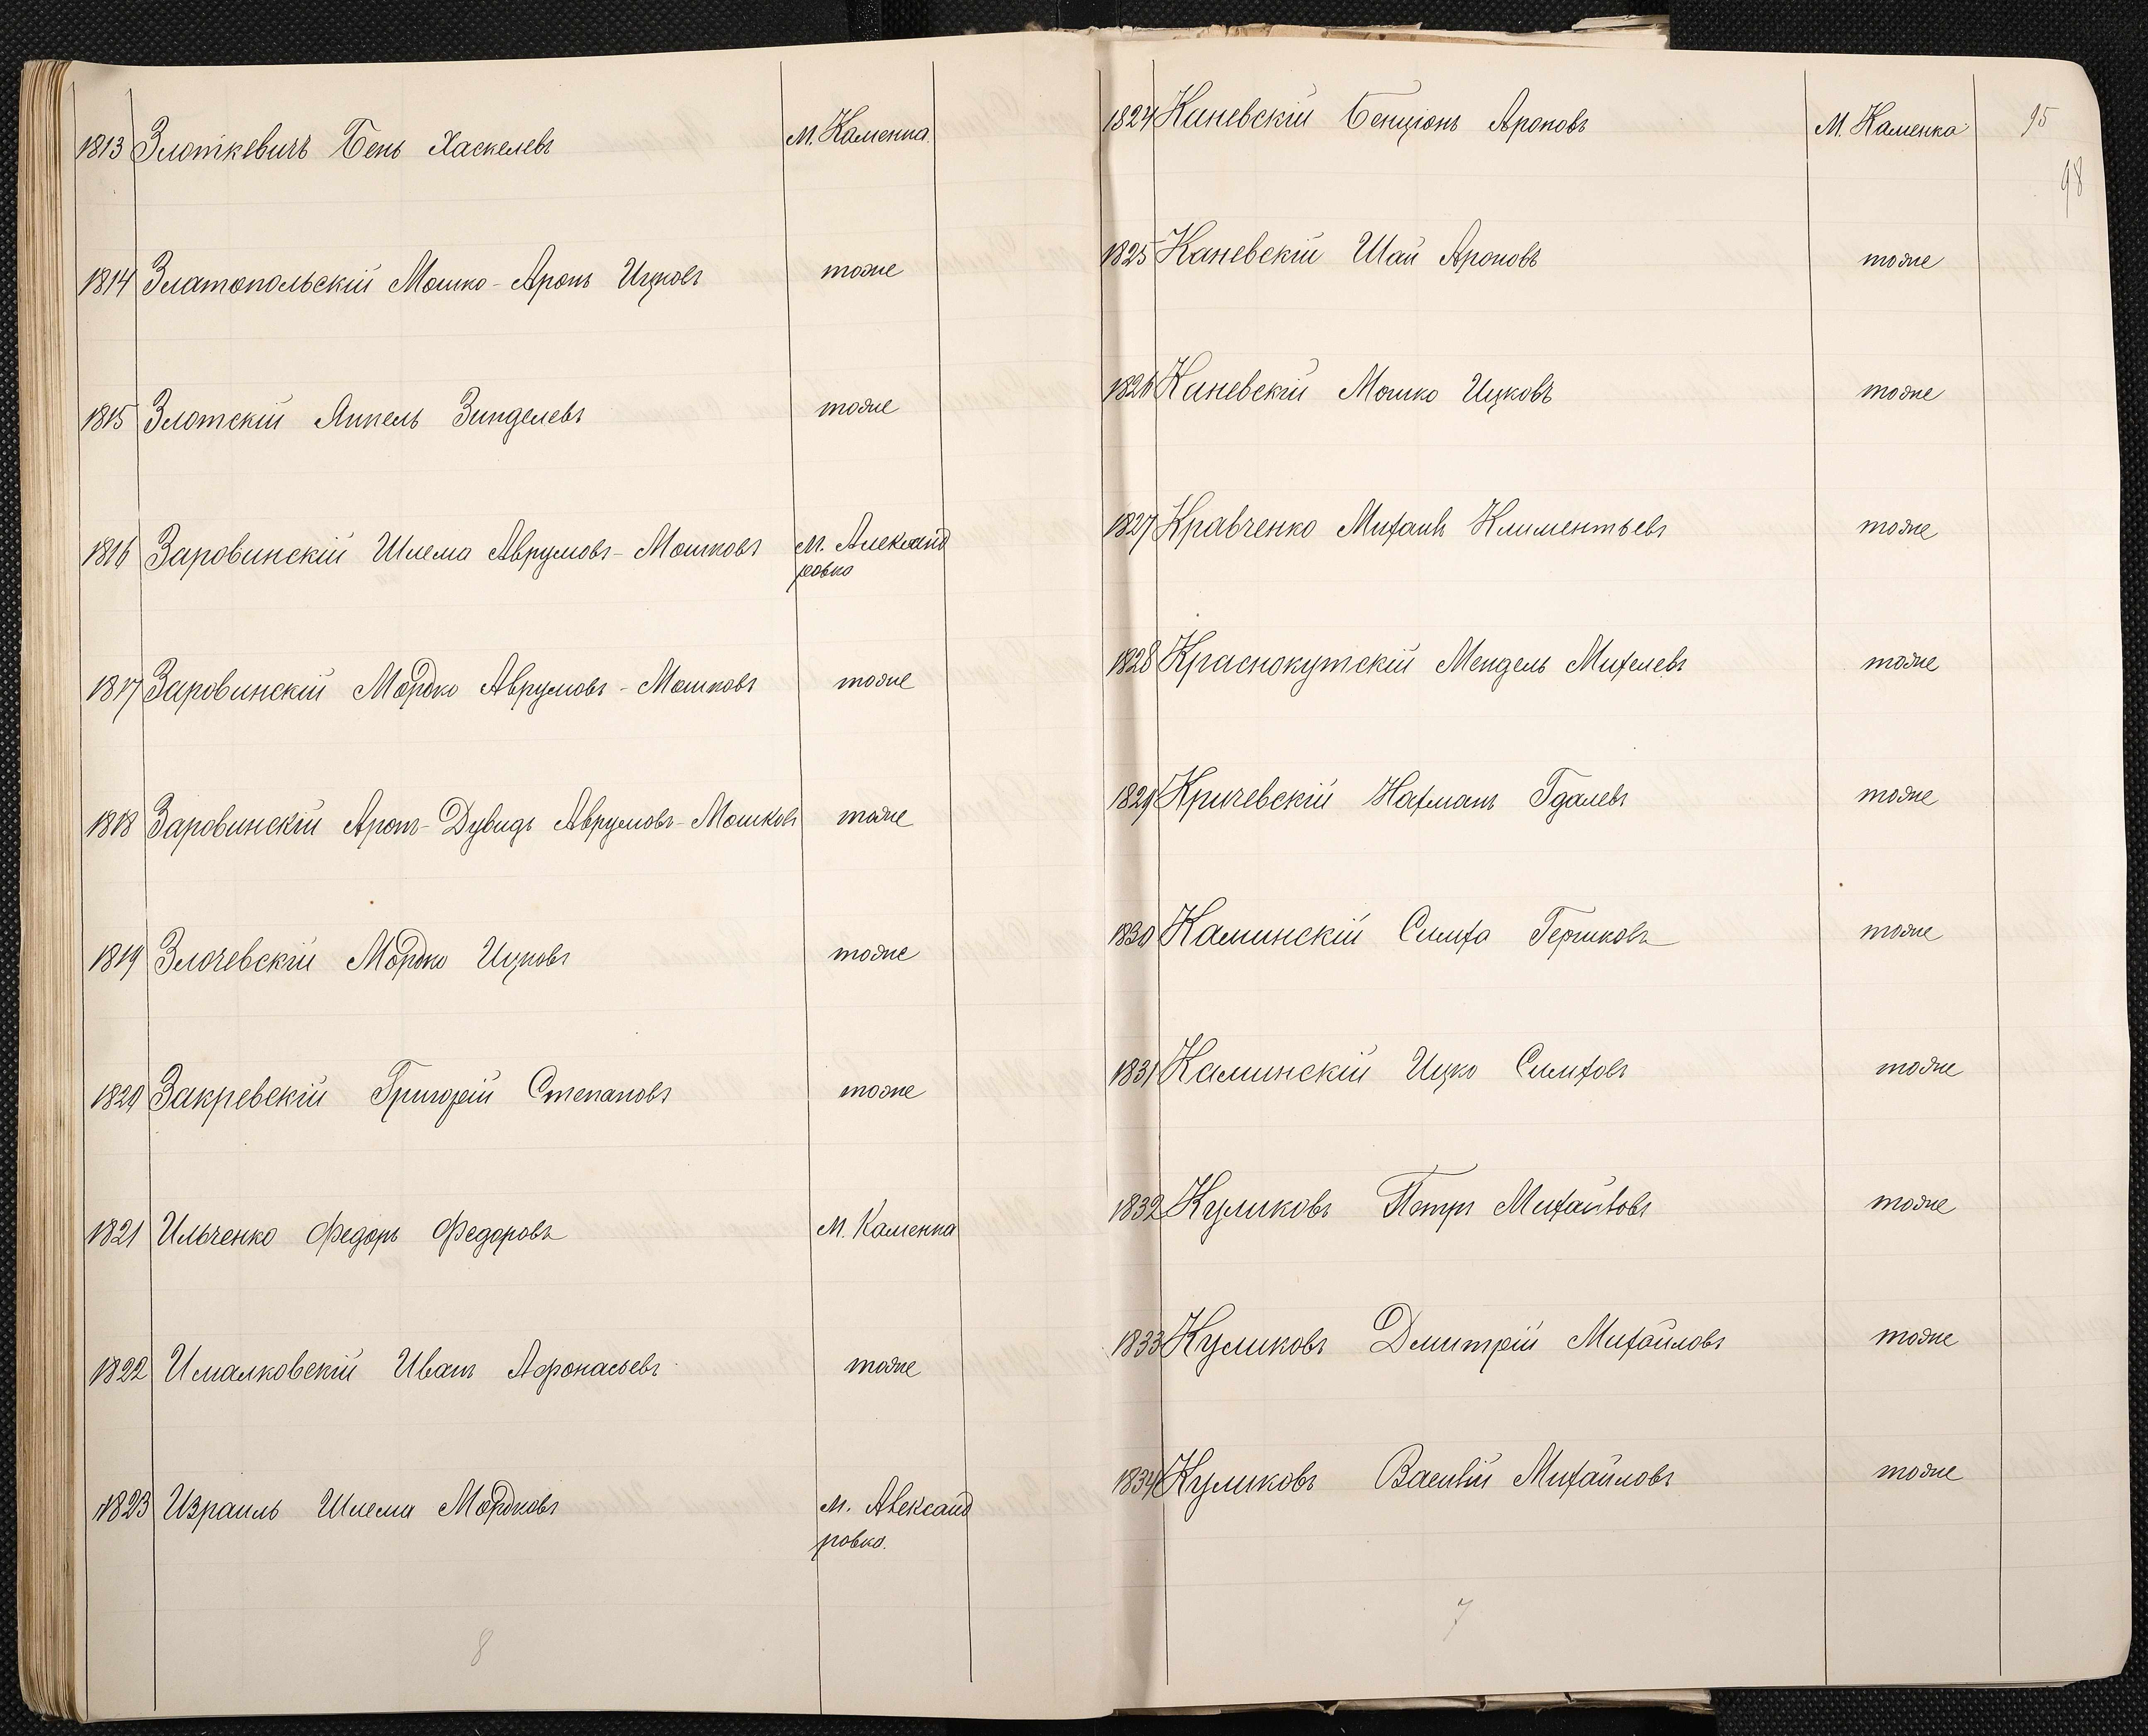 1813 Злоткевичъ Бень Хаскелевъ М. Каменка
1814 Златопольскій Мошко-Аронъ Ицковъ тоже
1815 Злотскій Янкель Зинделевъ тоже
1816 Заровинскій Шлема Аврумовъ-Мошковъ М. Александ
ровка
1817 Заровинскій Мордко Аврумовъ-Мошковъ тоже
1818 Заровинскій Аронъ-Дувидъ Аврумовъ-Мошковъ тоже
1819 Злочевскій Мордко Ицковъ тоже
1820 Закревскій Григорій Степановъ тоже
1821 Ильченко Федоръ Федоровъ М. Каменка
1822 Ималковскій Иванъ Афонасьевъ тоже
1823 Израиль Шлема Мордковъ М. Александ
ровка.
8
1824 Каневскій Бенціонъ Ароновъ М. Каменка 95
98
1825 Каневскій Шай Ароновъ тоже
1826 Каневскій Мошко Ицковъ тоже
1827 Кравченко Михаилъ Климентьевъ тоже
1828 Краснокутскій Мендель Михелевъ тоже
1829 Кричевскій Нахманъ Гдалевъ тоже
1830 Каминскій Симха Гершковъ тоже
1831 Каминскій Ицко Симховъ тоже
1832 Куликовъ Петръ Михайловъ тоже
1833 Куликовъ Дмитрій Михайловъ тоже
1834 Куликовъ Василій Михайловъ тоже
7